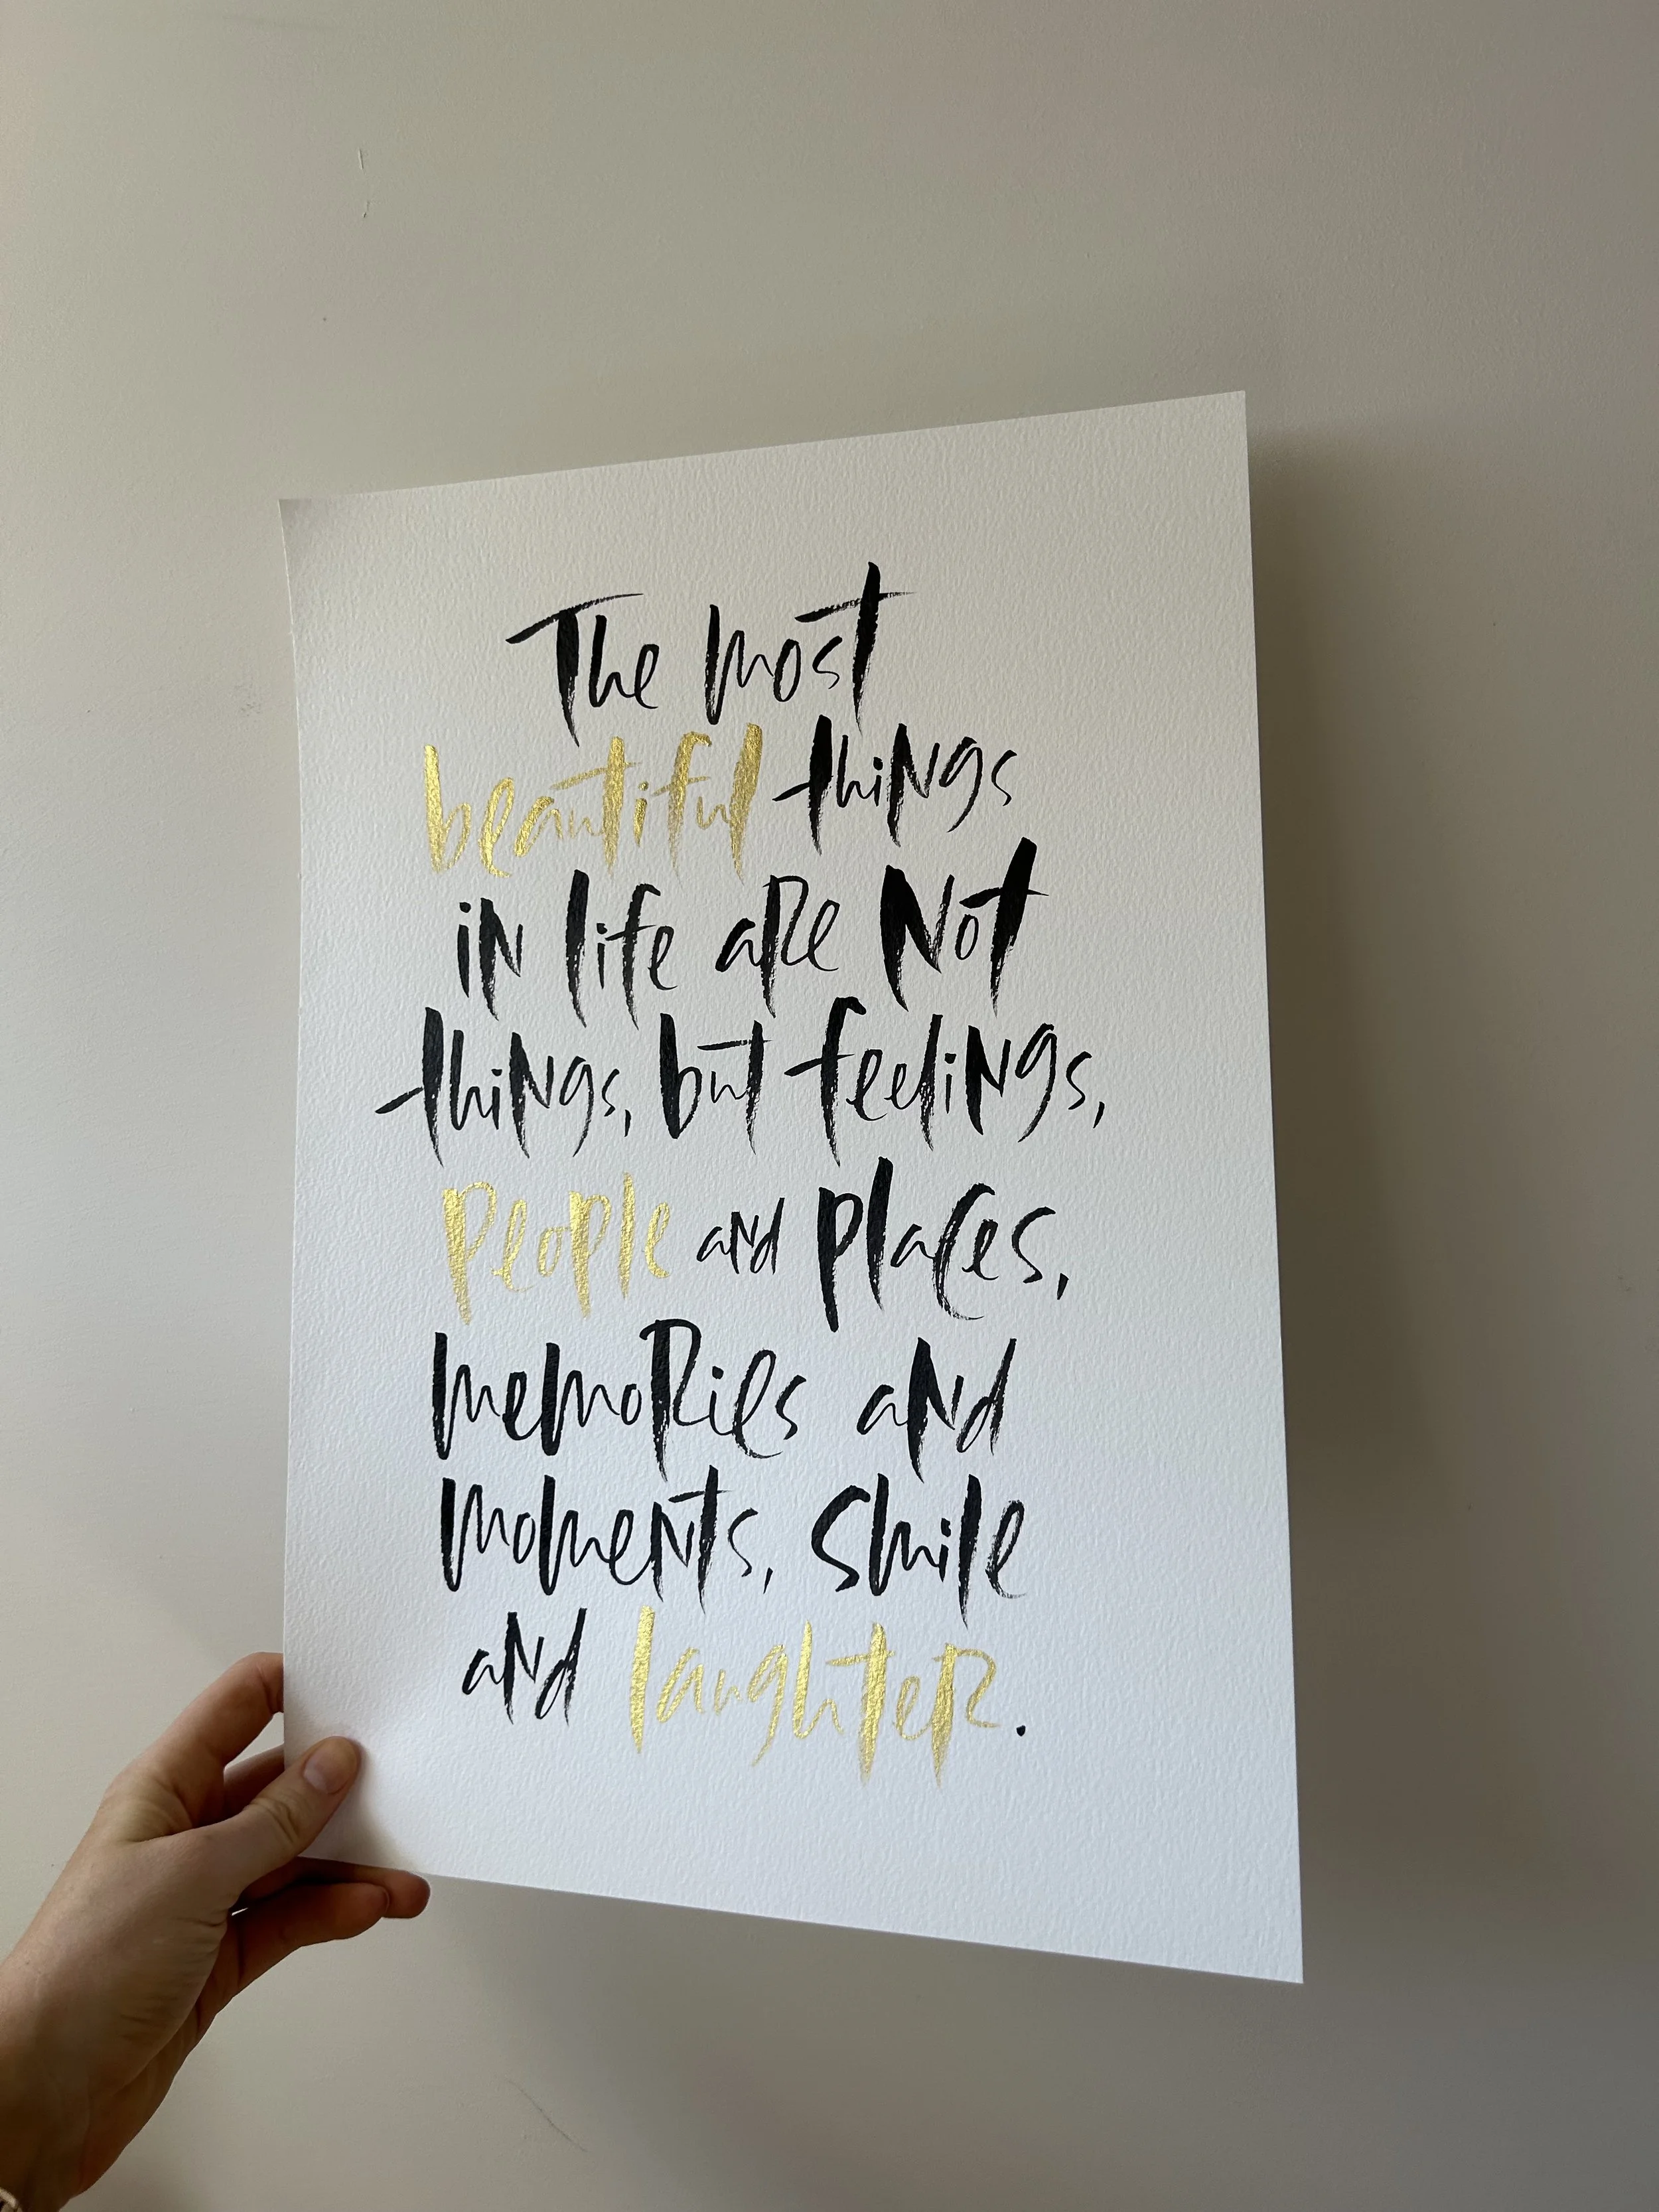 The most
beautiful things
in life are Not
things, but feelings,
People and places,
memories and
moments, smile
and laughter.